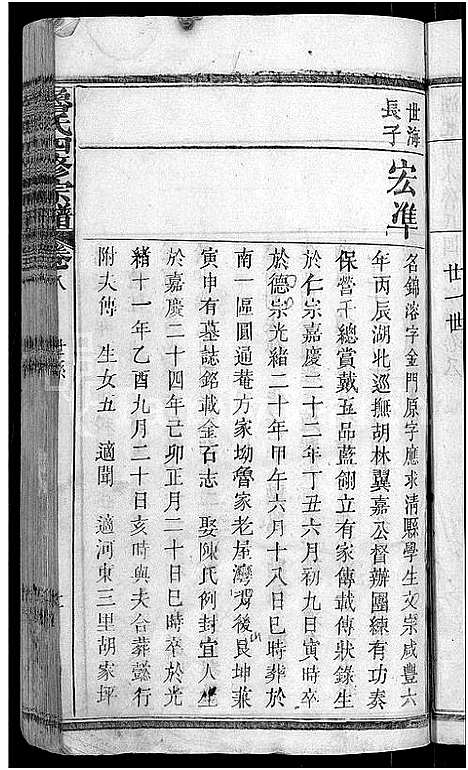 廿一世
世海
長子
宏準
名錦溶字金門原字應求清縣學生文宗咸豐六
年丙辰湖北巡撫胡林翼嘉公督辦團練有功奏
保營千總賞戴五品藍翎立有家傳載傳狀錄生
於仁宗嘉慶二十二年丁丑六月初九日寅時卒
於德宗光緒二十年甲午六月十八日巳時葬於
南一區圓通菴方家坳魯家老屋灣屋後艮山坤兼
寅申有墓誌銘載金石志 娶陳氏例封宜人生
於嘉慶二十四年己卯正月二十日巳時卒於光
緒十一年乙酉九月二十日亥時與夫合葬懿行
附夫傳 生女五 適聞 適河東三里胡家坪
氏四修宗譜
卷八
世系